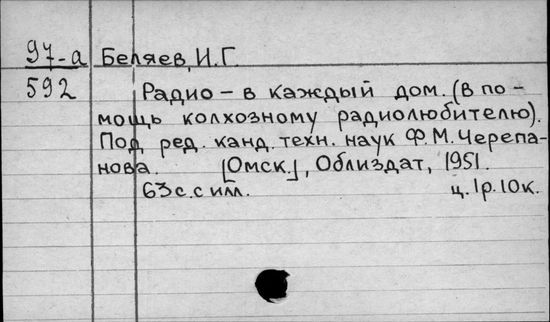 97-а Беляев, И.Г.
592 Радио - в каждый дом. (В по-
мощь колхозному радиолюбителю).
Под ред. канд. техн. наук Ф.М. Черепа-
нова. [Омск.], Облиздат, 1951.
63с. с илл. ц. 1р. 10к.